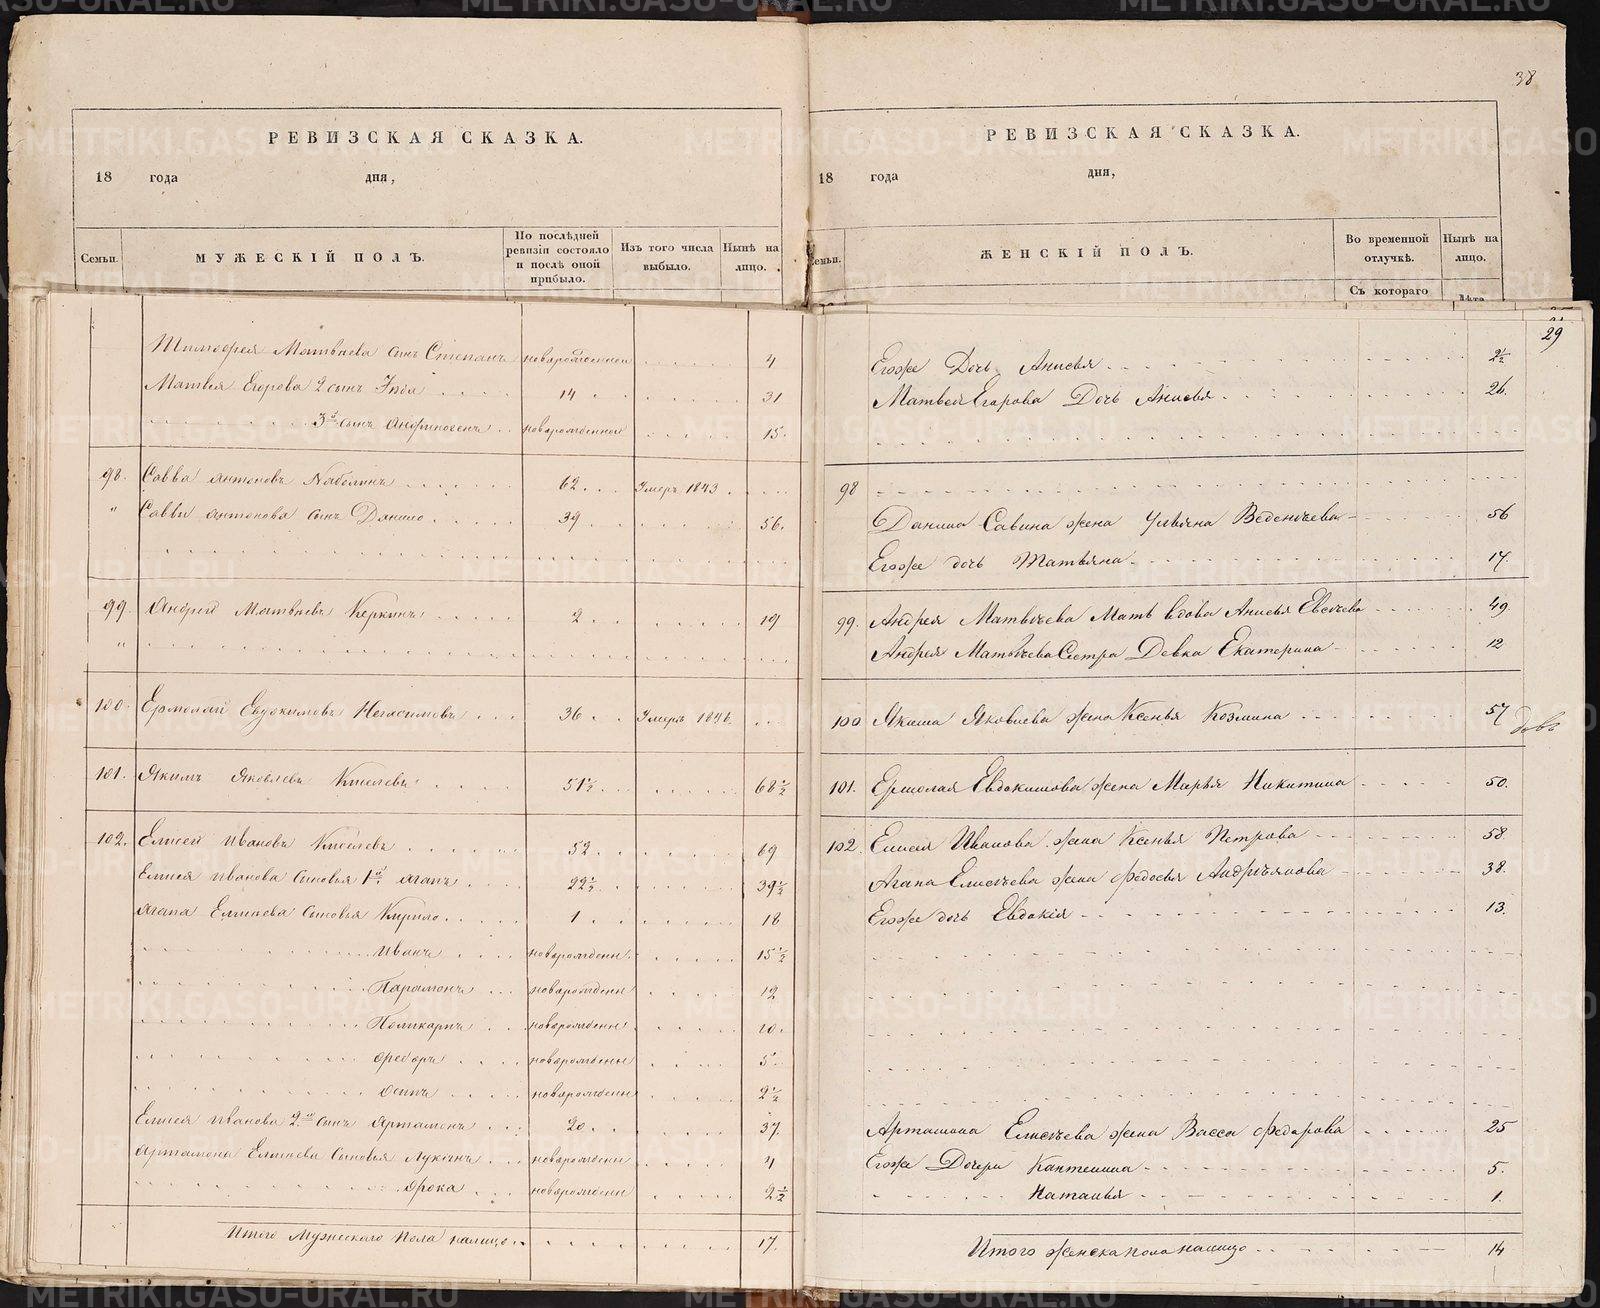 38
РЕВИЗСКАЯ СКАЗКА.
18 года дня,
Семьи.
МУЖЕСКІЙ ПОЛЪ.
По послѣдней ревизіи состояло и послѣ оной прибыло.
Изъ того числа выбыло.
Нынѣ на лицо.
Тимофея Матвѣева сынъ Степанъ новорожденной 4
Матвея Егорова 2 сынъ 14 31
3й сынъ новорожденной 15.
98. Савва Антоновъ 62 Умеръ 1843
" Саввы Антонова сынъ Данило 39 56.
99. Андрей Матвѣевъ Керкинъ 2 19
"
100. Ермолай Евдокимовъ Негасимовъ 36 Умеръ 1846.
101. Якимъ Яковлевъ Киселевъ 51½ 68½
102. Елисей Ивановъ Киселевъ 52 69
Елисея Иванова сыновья 1й Агапъ 22½ 39½
Агапа Елисеева сыновья Кирило 1 18
Иванъ новорожденн. 15½
Парамонъ новорожденн 12
Поликарпъ новорожденн 10.
Федоръ новорожденн 5
Осипъ новорожденн 2½
Елисея Иванова 2й сынъ Артамонъ 20 37.
Артамона Елисеева сыновья Лукьянъ новорожденн 4
Фрока новорожденн 2½
Итого Мужескаго пола налицо 17.
РЕВИЗСКАЯ СКАЗКА.
18 года дня,
Семьи.
ЖЕНСКІЙ ПОЛЪ.
Во временной отлучкѣ.
Нынѣ на лицо.
Съ котораго
Лѣта
29
Егоже Дочь Анисья 2½
Матвея Егорова Дочь Анисья 26.
98
Данила Савина жена Ульяна Веденѣева 56
Егоже дочь Татьяна 17.
99. Андрея Матвѣева Мать вдова Анисья Евсѣева 49.
Андрея Матвѣева Сестра Девка Екатерина 12
100 Якима Яковлева жена Ксенья Козмина 57
101. Ермолая Евдокимова жена Марья Никитина 50.
102. Елисея Иванова жена Ксенья Петрова 58.
Агапа Елисѣева жена Федосья Андрѣянова 38.
Егоже дочь Евдокія 13.
Артамона Елисѣева жена Васса Федорова 25
Егоже Дочери Каптелина 5.
Наталья 1.
Итого женска пола налицо 14
METRIKI.GASO-URAL.RU